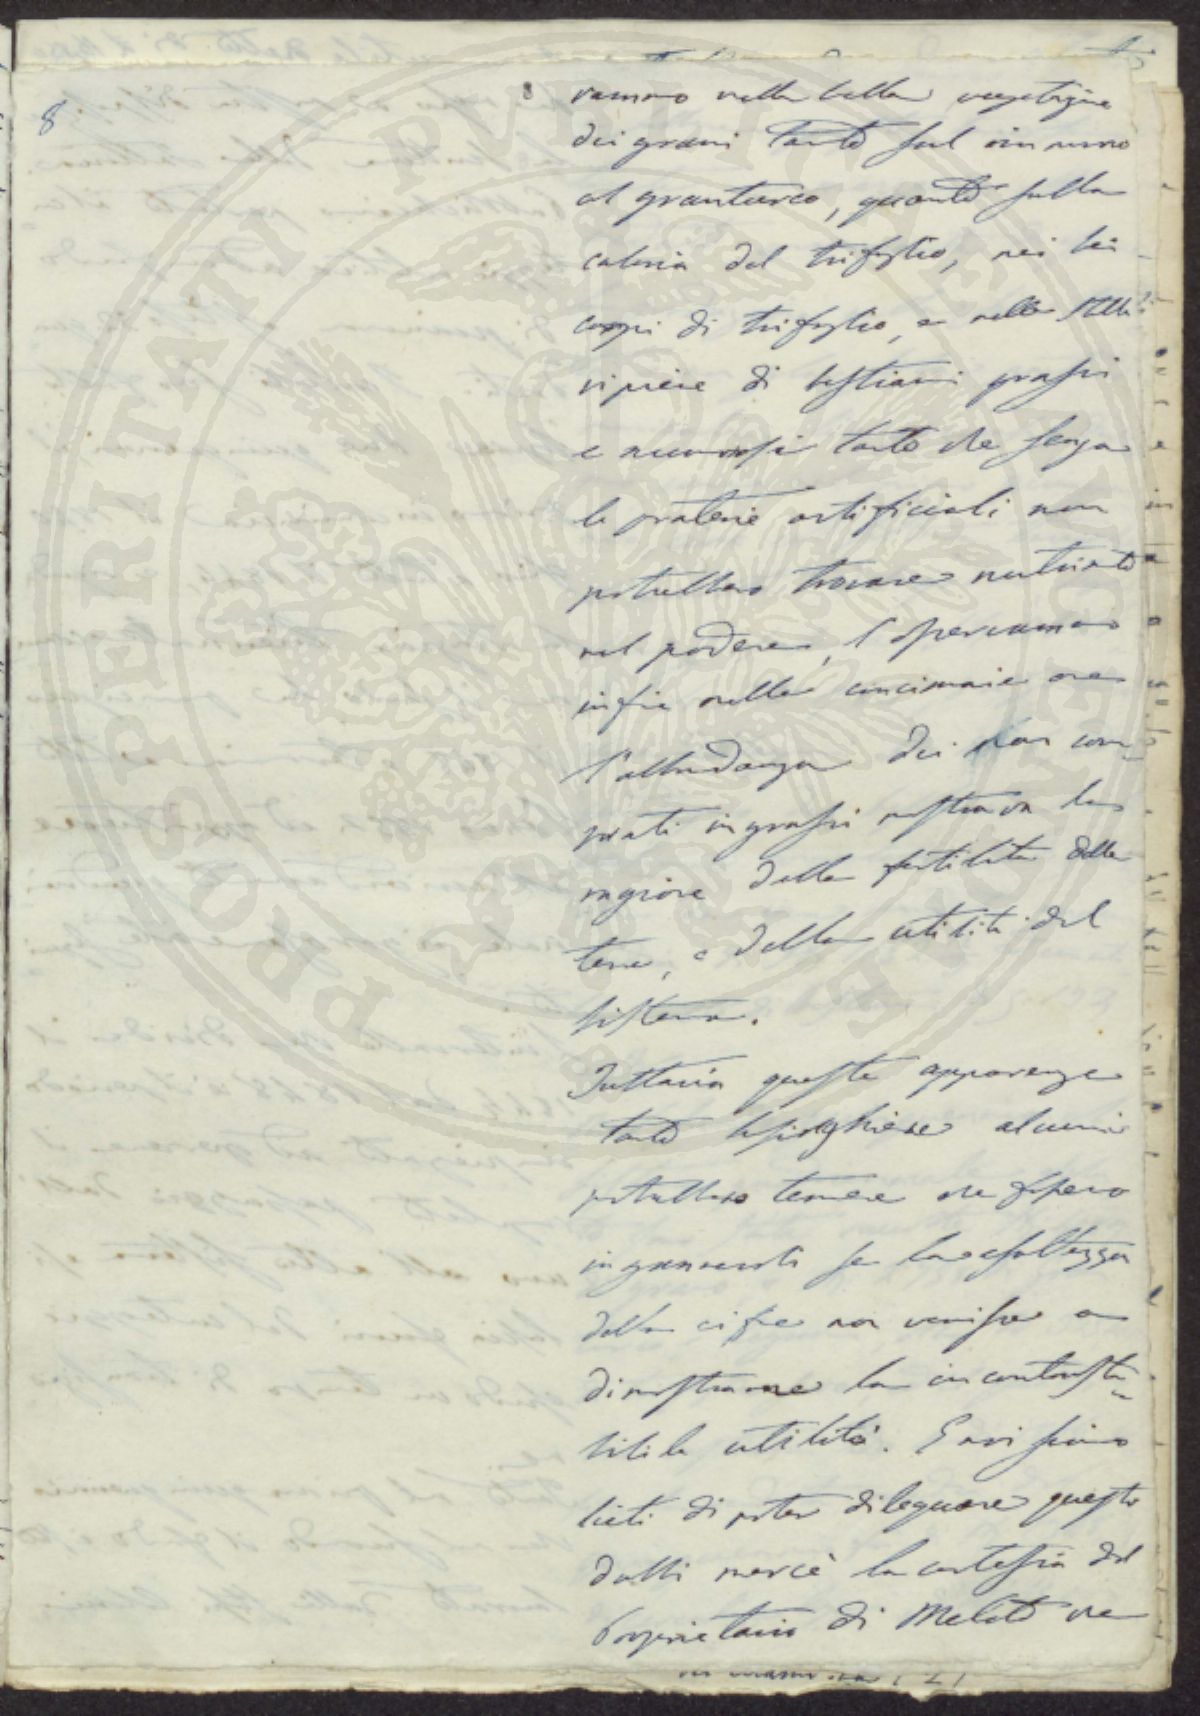 8
vammo nella bella vegetazione
dei grani tanto sul rinnuovo
al granturco, quanto sulla
caloria del trifoglio, nei bei
campi di trifoglio, e nelle stalle
ripiene di bestiami grassi
e numerosi tanto che senza
le praterie artificiali non
potrebbero trovare nutrimento
nel podere, l'osservammo
infine nelle concimaie ove
l'abbondanza dei non com-
prati ingrassi mostrava la
ragione della fertilità delle
terre, e della utilità del
sistema.
Tuttavia queste apparenze
tanto lusinghiere alcuni
potrebbero temere che fossero
ingannevoli se la esattezza
delle cifre non venisse a
dimostrarne la incontrasta-
bile utilità. E noi siamo
lieti di poter dileguare questi
dubbi mercè la cortesia del
Proprietario di Meleto che
PROSPERITATI PUBLICAE AUGENDAE